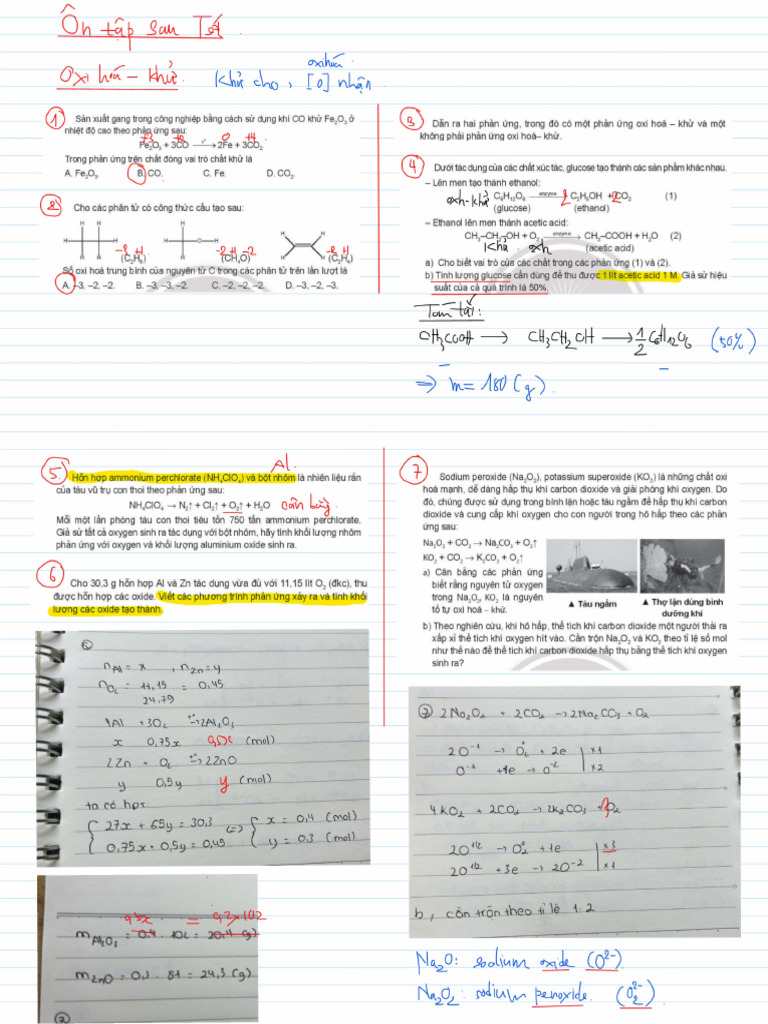 Ôn tập sau Tết.
Oxi hoá – khử. Khử cho, [O] nhận.
oxi hoá
① Sản xuất gang trong công nghiệp bằng cách sử dụng khí CO khử Fe₂O₃ ở
nhiệt độ cao theo phản ứng sau:
+3 +2 0 +4
Fe₂O₃ + 3CO ⟶ 2Fe + 3CO₂
Trong phản ứng trên chất đóng vai trò chất khử là
A. Fe₂O₃. B. CO. C. Fe. D. CO₂.
② Cho các phân tử có công thức cấu tạo sau:
H H H
H H O H
H H H
(C₂H₆) (CH₄O) (C₂H₄)
Số oxi hoá trung bình của nguyên tử C trong các phân tử trên lần lượt là
A. –3, –2, –2. B. –3, –3, –2. C. –2, –2, –2. D. –3, –2, –3.
③ Dẫn ra hai phản ứng, trong đó có một phản ứng oxi hoá – khử và một
không phải phản ứng oxi hoá– khử.
④ Dưới tác dụng của các chất xúc tác, glucose tạo thành các sản phẩm khác nhau.
– Lên men tạo thành ethanol:
oxh-khử C₆H₁₂O₆ —enzyme→ 2C₂H₅OH + 2CO₂ (1)
(glucose) (ethanol)
– Ethanol lên men thành acetic acid:
CH₃–CH₂–OH + O₂ —enzyme→ CH₃–COOH + H₂O (2)
khử oxh (acetic acid)
a) Cho biết vai trò của các chất trong các phản ứng (1) và (2).
b) Tính lượng glucose cần dùng để thu được 1 lít acetic acid 1 M. Giả sử hiệu
suất của cả quá trình là 50%.
Tóm tắt:
CH₃COOH ⟶ CH₃CH₂OH ⟶ 1/2 C₆H₁₂O₆ (50%)
⇒ m = 180 (g).
Al.
⑤ Hỗn hợp ammonium perchlorate (NH₄ClO₄) và bột nhôm là nhiên liệu rắn
của tàu vũ trụ con thoi theo phản ứng sau:
NH₄ClO₄ → N₂↑ + Cl₂↑ + O₂↑ + H₂O cân bằng
Mỗi một lần phóng tàu con thoi tiêu tốn 750 tấn ammonium perchlorate.
Giả sử tất cả oxygen sinh ra tác dụng với bột nhôm, hãy tính khối lượng nhôm
phản ứng với oxygen và khối lượng aluminium oxide sinh ra.
⑥ Cho 30,3 g hỗn hợp Al và Zn tác dụng vừa đủ với 11,15 lít O₂ (đkc), thu
được hỗn hợp các oxide. Viết các phương trình phản ứng xảy ra và tính khối
lượng các oxide tạo thành.
⑥
n Al = x , n Zn = y
n O₂ = 11,15 / 24,79 = 0,45
4Al + 3O₂ → 2Al₂O₃
x 0,75x 0,5x (mol)
2Zn + O₂ → 2ZnO
y 0,5y y (mol)
ta có hpt
{ 27x + 65y = 30,3 (=) { x = 0,4 (mol)
0,75x + 0,5y = 0,45 y = 0,3 (mol)
= 0,2×102
m Al₂O₃ = 0,4 . 102 = 20,4 (g)
m ZnO = 0,3 . 81 = 24,3 (g)
⑦
⑦ Sodium peroxide (Na₂O₂), potassium superoxide (KO₂) là những chất oxi
hoá mạnh, dễ dàng hấp thụ khí carbon dioxide và giải phóng khí oxygen. Do
đó, chúng được sử dụng trong bình lặn hoặc tàu ngầm để hấp thụ khí carbon
dioxide và cung cấp khí oxygen cho con người trong hô hấp theo các phản
ứng sau:
Na₂O₂ + CO₂ → Na₂CO₃ + O₂↑
KO₂ + CO₂ → K₂CO₃ + O₂↑
a) Cân bằng các phản ứng
biết rằng nguyên tử oxygen
trong Na₂O₂, KO₂ là nguyên
tố tự oxi hoá – khử.
▲ Tàu ngầm
▲ Thợ lặn dùng bình
dưỡng khí
b) Theo nghiên cứu, khi hô hấp, thể tích khí carbon dioxide một người thải ra
xấp xỉ thể tích khí oxygen hít vào. Cần trộn Na₂O₂ và KO₂ theo tỉ lệ số mol
như thế nào để thể tích khí carbon dioxide hấp thụ bằng thể tích khí oxygen
sinh ra?
⑦ 2Na₂O₂ + 2CO₂ → 2Na₂CO₃ + O₂
2O⁻¹ → O₂⁰ + 2e | x1
O⁻¹ + 1e → O⁻² | x2
4KO₂ + 2CO₂ → 2K₂CO₃ + 3O₂
2O⁻¹/² → O₂⁰ + 1e | x3
2O⁻¹/² + 3e → 2O⁻² | x1
b, cần trộn theo tỉ lệ 1:2
Na₂O: sodium oxide (O²⁻).
Na₂O₂: sodium peroxide. (O₂²⁻)